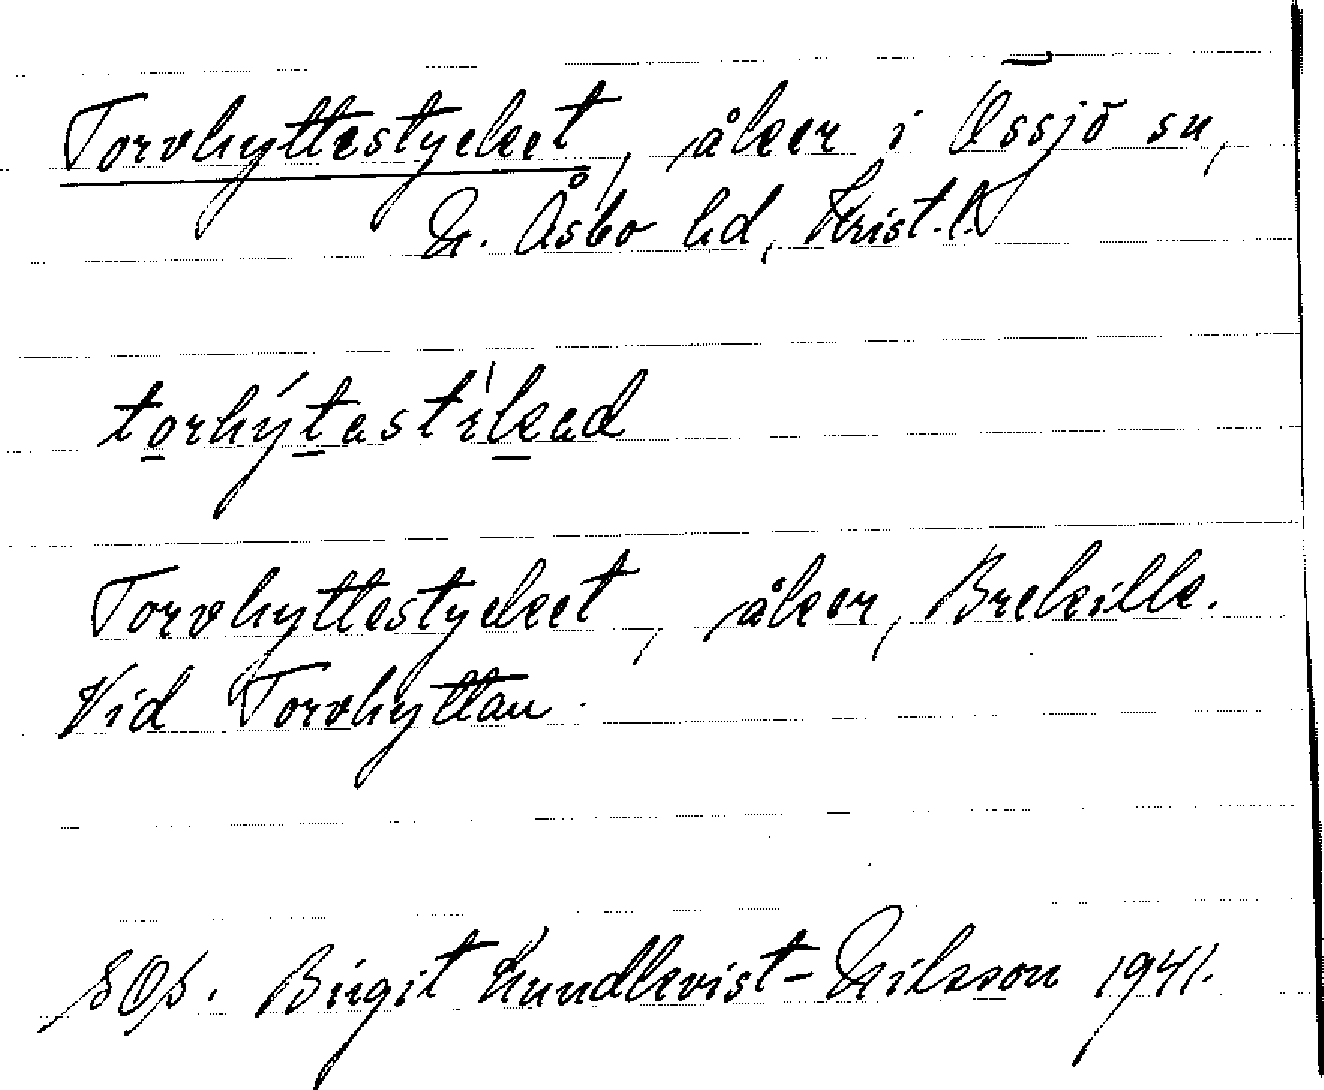 Torvhyttestycket, åker i Össjö sn,
N. Åsbo hd, Krist. l.
torhýtastikad
Torvhyttestycket, åker, Brekille.
Vid Torvhyttan.
SOS. Birgit Kundkvist-Nilsson 1941.